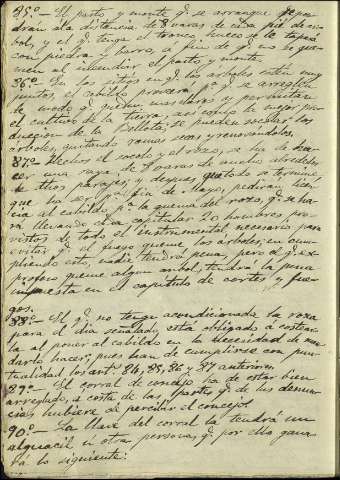 85º.- El pasto, y monte q.e se arranque se pon-
drán a la distancia de 8 varas de cada pié de ár-
bol, y el q.e tenga el tronco hueco se le tapará
con piedra y barro, a fin de q.e no se que-
men al incendiar el pasto y monte.
86º.- En los sitios en q.e los árboles estén muy
juntos, el cabildo proveerá p.a q.e se arreglen
de modo q.e puedan
el cultivo de la tierra, así como la mejor pro-
ducción de la bellota, se pueden secolar los
árboles, quitando ramas secas y renovándolos.
87º.- Hechos el socolo y el rozo, se ha de ha-
cer una raya de 8 varas de ancho alrededor
de dhos parajes, y después q.e todo se termine,
que ha ser p.a fin de Mayo, pedirán licen-
cia al cabildo p.a la quema del rozo, q.e se ha-
rá llevando cada capitular 20 hombres pro-
vistos de todo el instrumental necesario para
evitar q.e el fuego queme los árboles; en cum-
pliendo esto, nadie tendrá pena, pero el q.e ex-
profeso queme algun arbol, tendrá la pena
impuesta en el capítulo de cortes y fue-
gos.
88º.- El q.e no tenga acondicionada la roza
para el dia señalado, está obligado a costear-
la al poner al cabildo en la necesidad de man-
darlo hacer, pues han de cumplirse con pun-
tualidad los art.s 84, 85, 86 y 87 anteriores.
89º.- El corral de concejo ha de estar bien
arreglado, a costa de las partes q.e de las denun-
cias hubiere de percibir el concejo.
90º.- La llave del corral la tendrá un
alguacil u otra persona, q.e por ello gana-
rá lo siguiente: